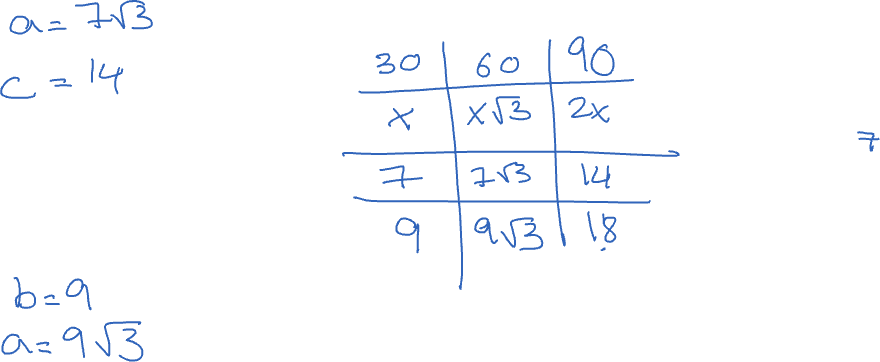 a = 7√3
c = 14
30 60 90
x x√3 2x
7
7 7√3 14
9 9√3 18
b = 9
a = 9√3